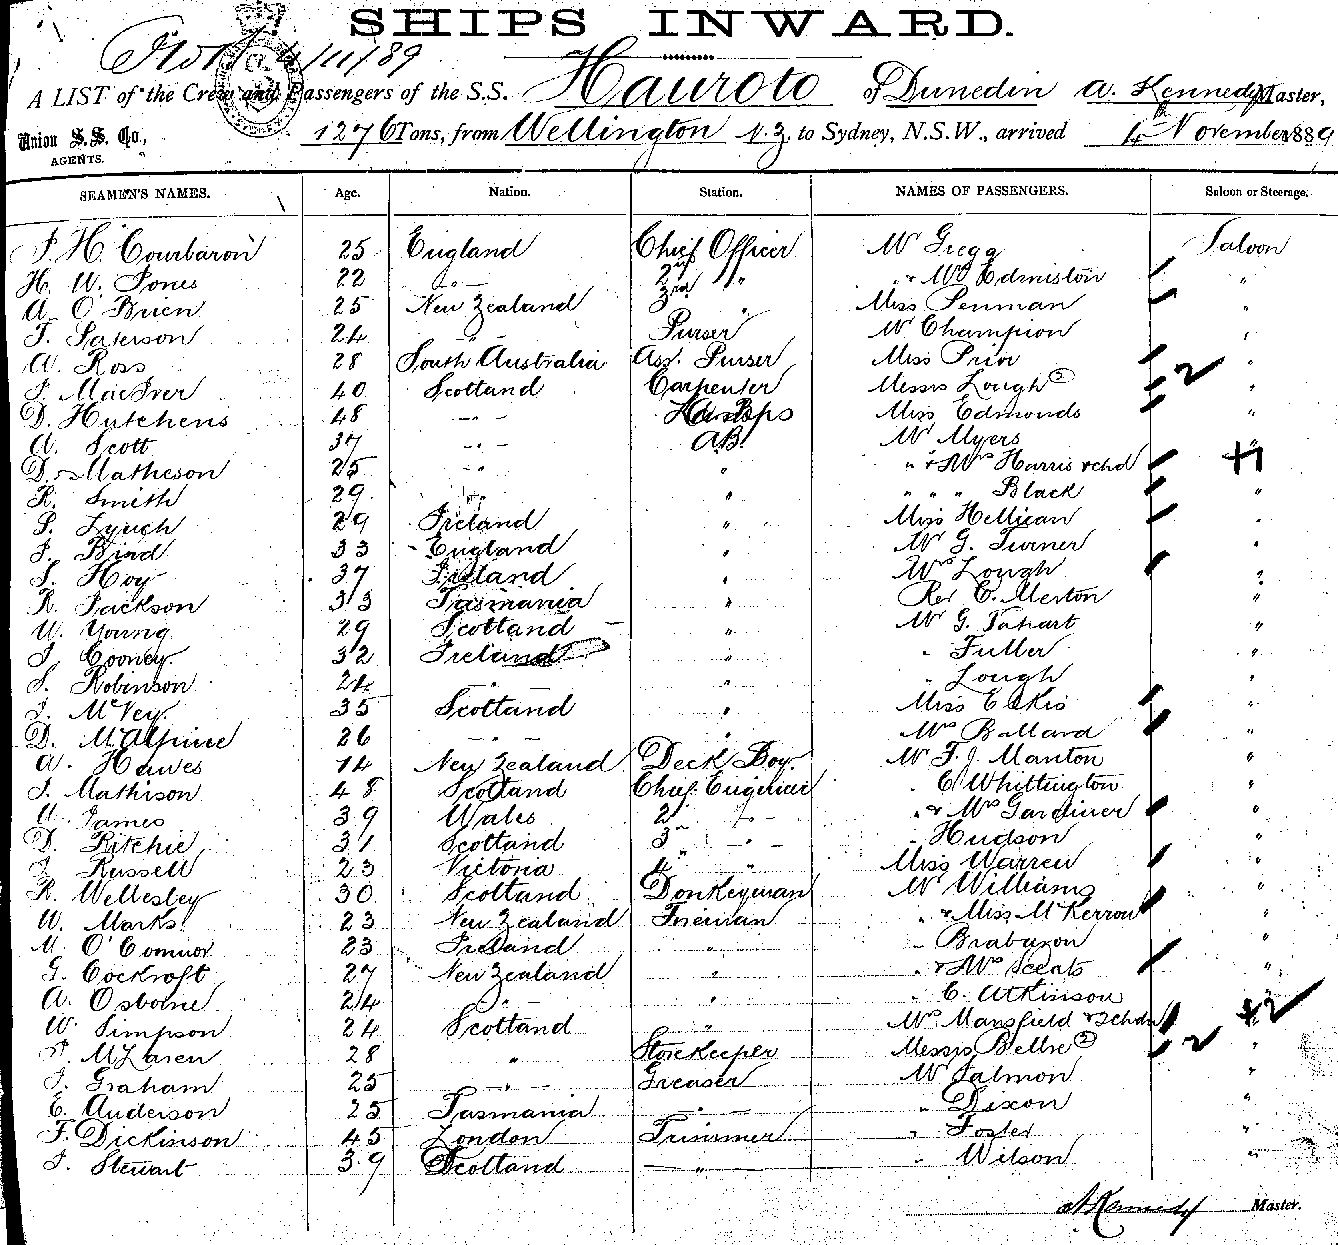 SHIPS INWARD.
4/11/89
A LIST of the Crew and Passengers of the S.S. Hauroto Of Dunedin A. Kennedy Master,
Union S. S. Co., AGENTS. 1276 Tons, from Wellington N.Z. to Sydney, N.S.W., arrived 4th November 1889
SEAMEN'S NAMES. Age. Nation. Station. NAMES OF PASSENGERS. Saloon or Steerage.
J H Courbaron 25 England Chief Officer Mr Gregg Saloon
H. W. Jones 22 " 2nd " " & Mrs Edmiston "
A. O'Brien 25 New Zealand 3rd " Miss Penman "
T. Paterson 24 " Purser Mr Champion "
A. Ross 28 South Australia Ass. Purser Miss Prior "
J. MacIver 40 Scotland Carpenter Messrs Lough 2 2 "
D. Hutchens 48 " Miss Edmonds "
A. Scott 37 " A.B. Mr Myers "
D. Matheson 25 " " " & Mrs Harris & chd +1
R. Smith 29 " " " " " Black "
P. Lynch 29 Ireland " Miss Hellican "
J. Bind 33 England " Mr G. Turner "
S. Hoy 37 Ireland " Mrs Lough "
R. Jackson 33 Tasmania " Rev C. Merton "
W. Young 29 Scotland " Mr G. Tahart "
J. Cooney 32 Ireland " " Fuller "
S. Robinson 24 " " " Lough "
J. McVey 35 Scotland " Miss "
D. McAlpine 26 " " Mrs Ballard "
A. Hawes 14 New Zealand Deck Boy. Mr F. J. Manton "
J. Mathison 48 Scotland Chief Engineer " C. Whittington "
A. James 39 Wales 2 " " & Mrs Gardiner "
D. Ritchie 31 Scotland 3 " " Hudson "
J. Russell 23 Victoria 4 " Miss Warren "
R. Wellesley 30 Scotland Donkeyman Mr Williams "
W. Marks 23 New Zealand Fireman " & Miss McKerrow "
M. O'Connor 23 Ireland " " Brabazon "
G. Cockroft 27 New Zealand " " & Mrs Scents "
A. Osborne 24 " " " C. Atkinson "
W. Simpson 24 Scotland " Mrs Mansfield & 2 chdn +2
P. McLaren 28 " Storekeeper Messrs Bellve 2 2 "
J. Graham 25 " Greaser Mr Salmon "
E. Anderson 25 Tasmania " " Dixon "
F. Dickinson 45 London Trimmer " Foster "
J. Stewart 39 Scotland " " Wilson "
A Kennedy Master.